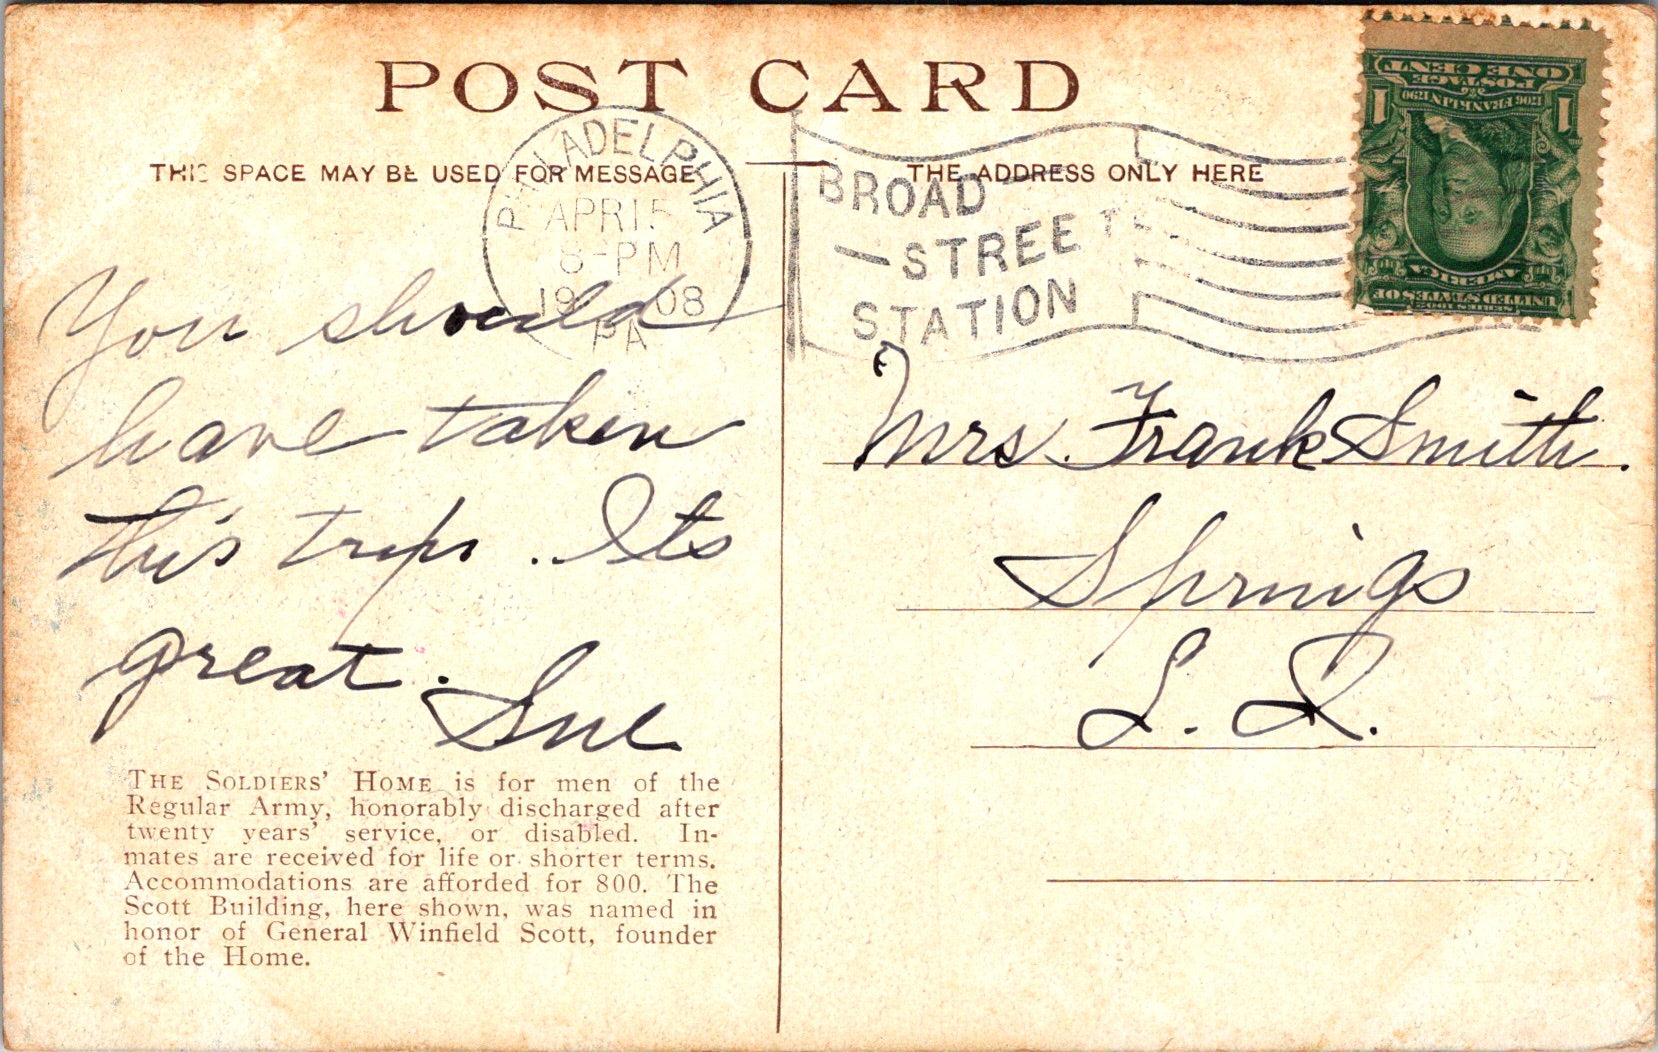 POST CARD
THIS SPACE MAY BE USED FOR MESSAGE
THE ADDRESS ONLY HERE
PHILADELPHIA
APR 15
8-PM
1908
PA
BROAD
STREET
STATION
ONE CENT
POSTAGE
1706 FRANKLIN 1790
1 1
UNITED STATES OF
AMERICA
You should
have taken
this trip. Its
great.
Sue
Mrs. Frank Smith.
Springs
L. I.
THE SOLDIERS' HOME is for men of the
Regular Army, honorably discharged after
twenty years' service, or disabled. In-
mates are received for life or shorter terms.
Accommodations are afforded for 800. The
Scott Building, here shown, was named in
honor of General Winfield Scott, founder
of the Home.